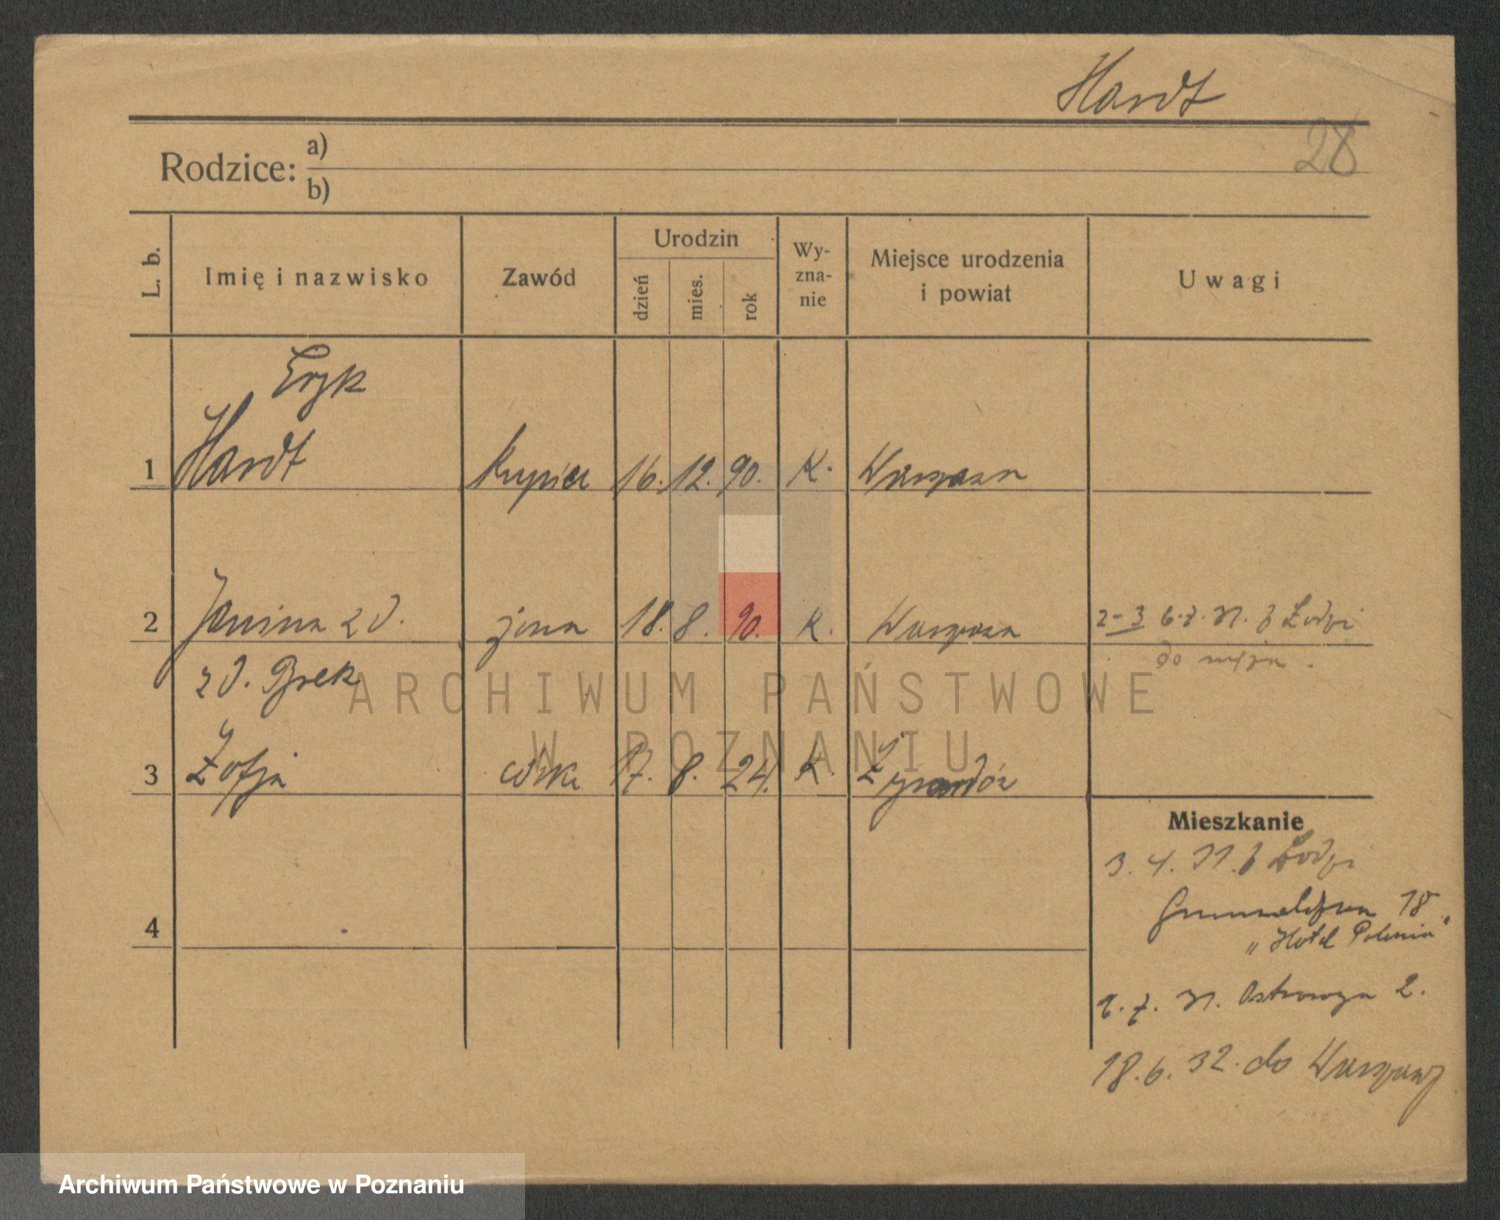 Hardt
28
Rodzice: a)
b)
L. b.
Imię i nazwisko
Zawód
Urodzin
dzień
mies.
rok
Wy-
zna-
nie
Miejsce urodzenia
i powiat
Uwagi
Eryk
1 Hardt kupiec 16. 12. 90. K. Warszawa
2 Janina z d. żona 18. 8. 90. K. Warszawa 2-3 6.7.31. z Łodzi
z d. do męża.
3 Zofja córka 17. 8. 24. K. Żyrardów
Mieszkanie
3. 4. 31. z Łodzi
4 Grunwaldzka 18
"Hotel Polonia"
7. 31. Ostrowska 2.
18. 6. 32. do Warszawy
ARCHIWUM PAŃSTWOWE
W POZNANIU
Archiwum Państwowe w Poznaniu